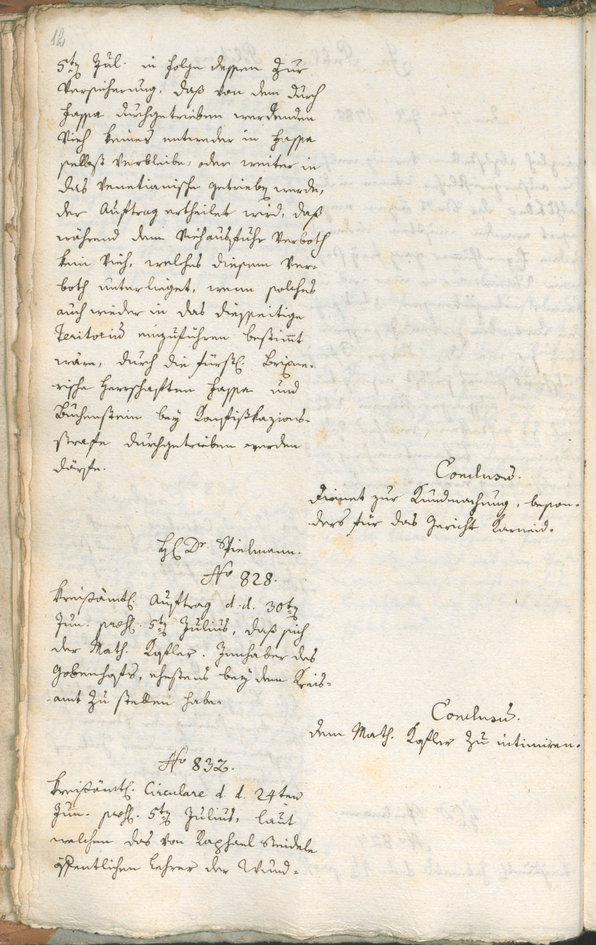 12
5ty Jul. in folge dessen zur
Versicherung, daß von dem durch
Fassa durchgetrieben werdenden
Vieh keines entweder in Fassa
selbst verbleibe, oder weiter in
das Venetianische getrieben werde,
der Auftrag ertheilet wird, daß
während dem Viehausfuhr Verboth
kein Vieh, welches diesem Ver-
both unterlieget, wenn solches
auch wieder in das diesseitige
Teritoriū einzuführen bestim̄t
wäre, durch die fürstl. Brixne-
rische Herrschafften Fassa und
Buchenstein bey Konfiskazions-
strafe durchgetrieben werden
dürfe.
Conclusū.
Dienet zur Kundmachung, beson-
ders für das Gericht Karneid.
H. Dr. Spielmann.
No 828.
Kreisämtl. Auftrag d. d. 30ty
Jun. præs. 5ty Julius, daß sich
der Math. Kofler, Innhaber des
ehestens bey dem Kreis-
amt zu stellen habe.
Conclusū.
dem Math. Kofler zu intimiren.
No 832.
Kreisämtl. Circulare d. d. 24ten
Jun. præs. 5ty Julius, laut
welchem das von Raphael Steidele
öffentlichen Lehrer der Wund-